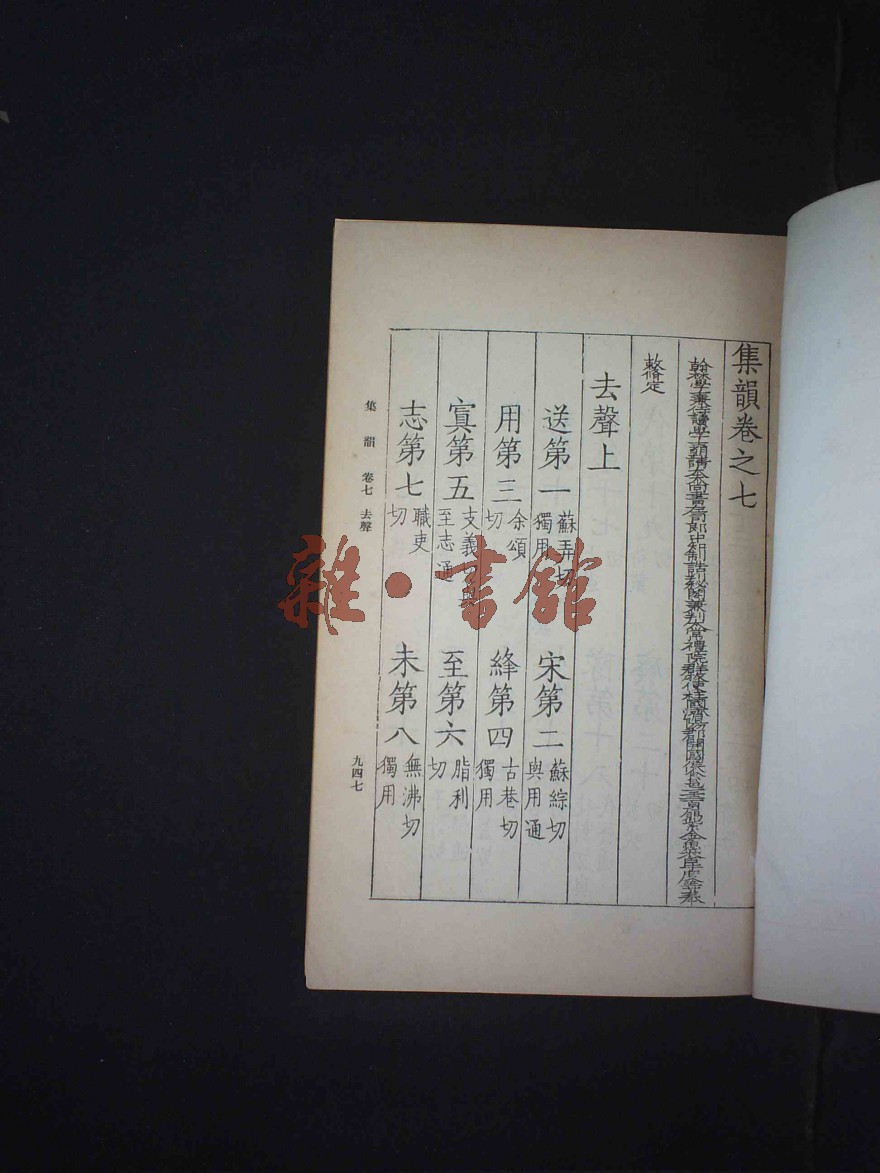 集韻卷之七
翰林學士兼侍讀學士朝請大夫尚書左司郎中知制誥判祕閣兼判太常禮院群牧使柱國濟陽郡開國侯食邑一千三百戶賜紫金魚袋臣丁度等奉
敕脩定
去聲上
送第一 蘇弄切獨用 宋第二 蘇綜切與用通
用第三 余頌切 絳第四 古巷切獨用
寘第五 支義切與至志通 至第六 脂利切
志第七 職吏切 未第八 無沸切獨用
集韻 卷七 去聲 九四七
雜·書館